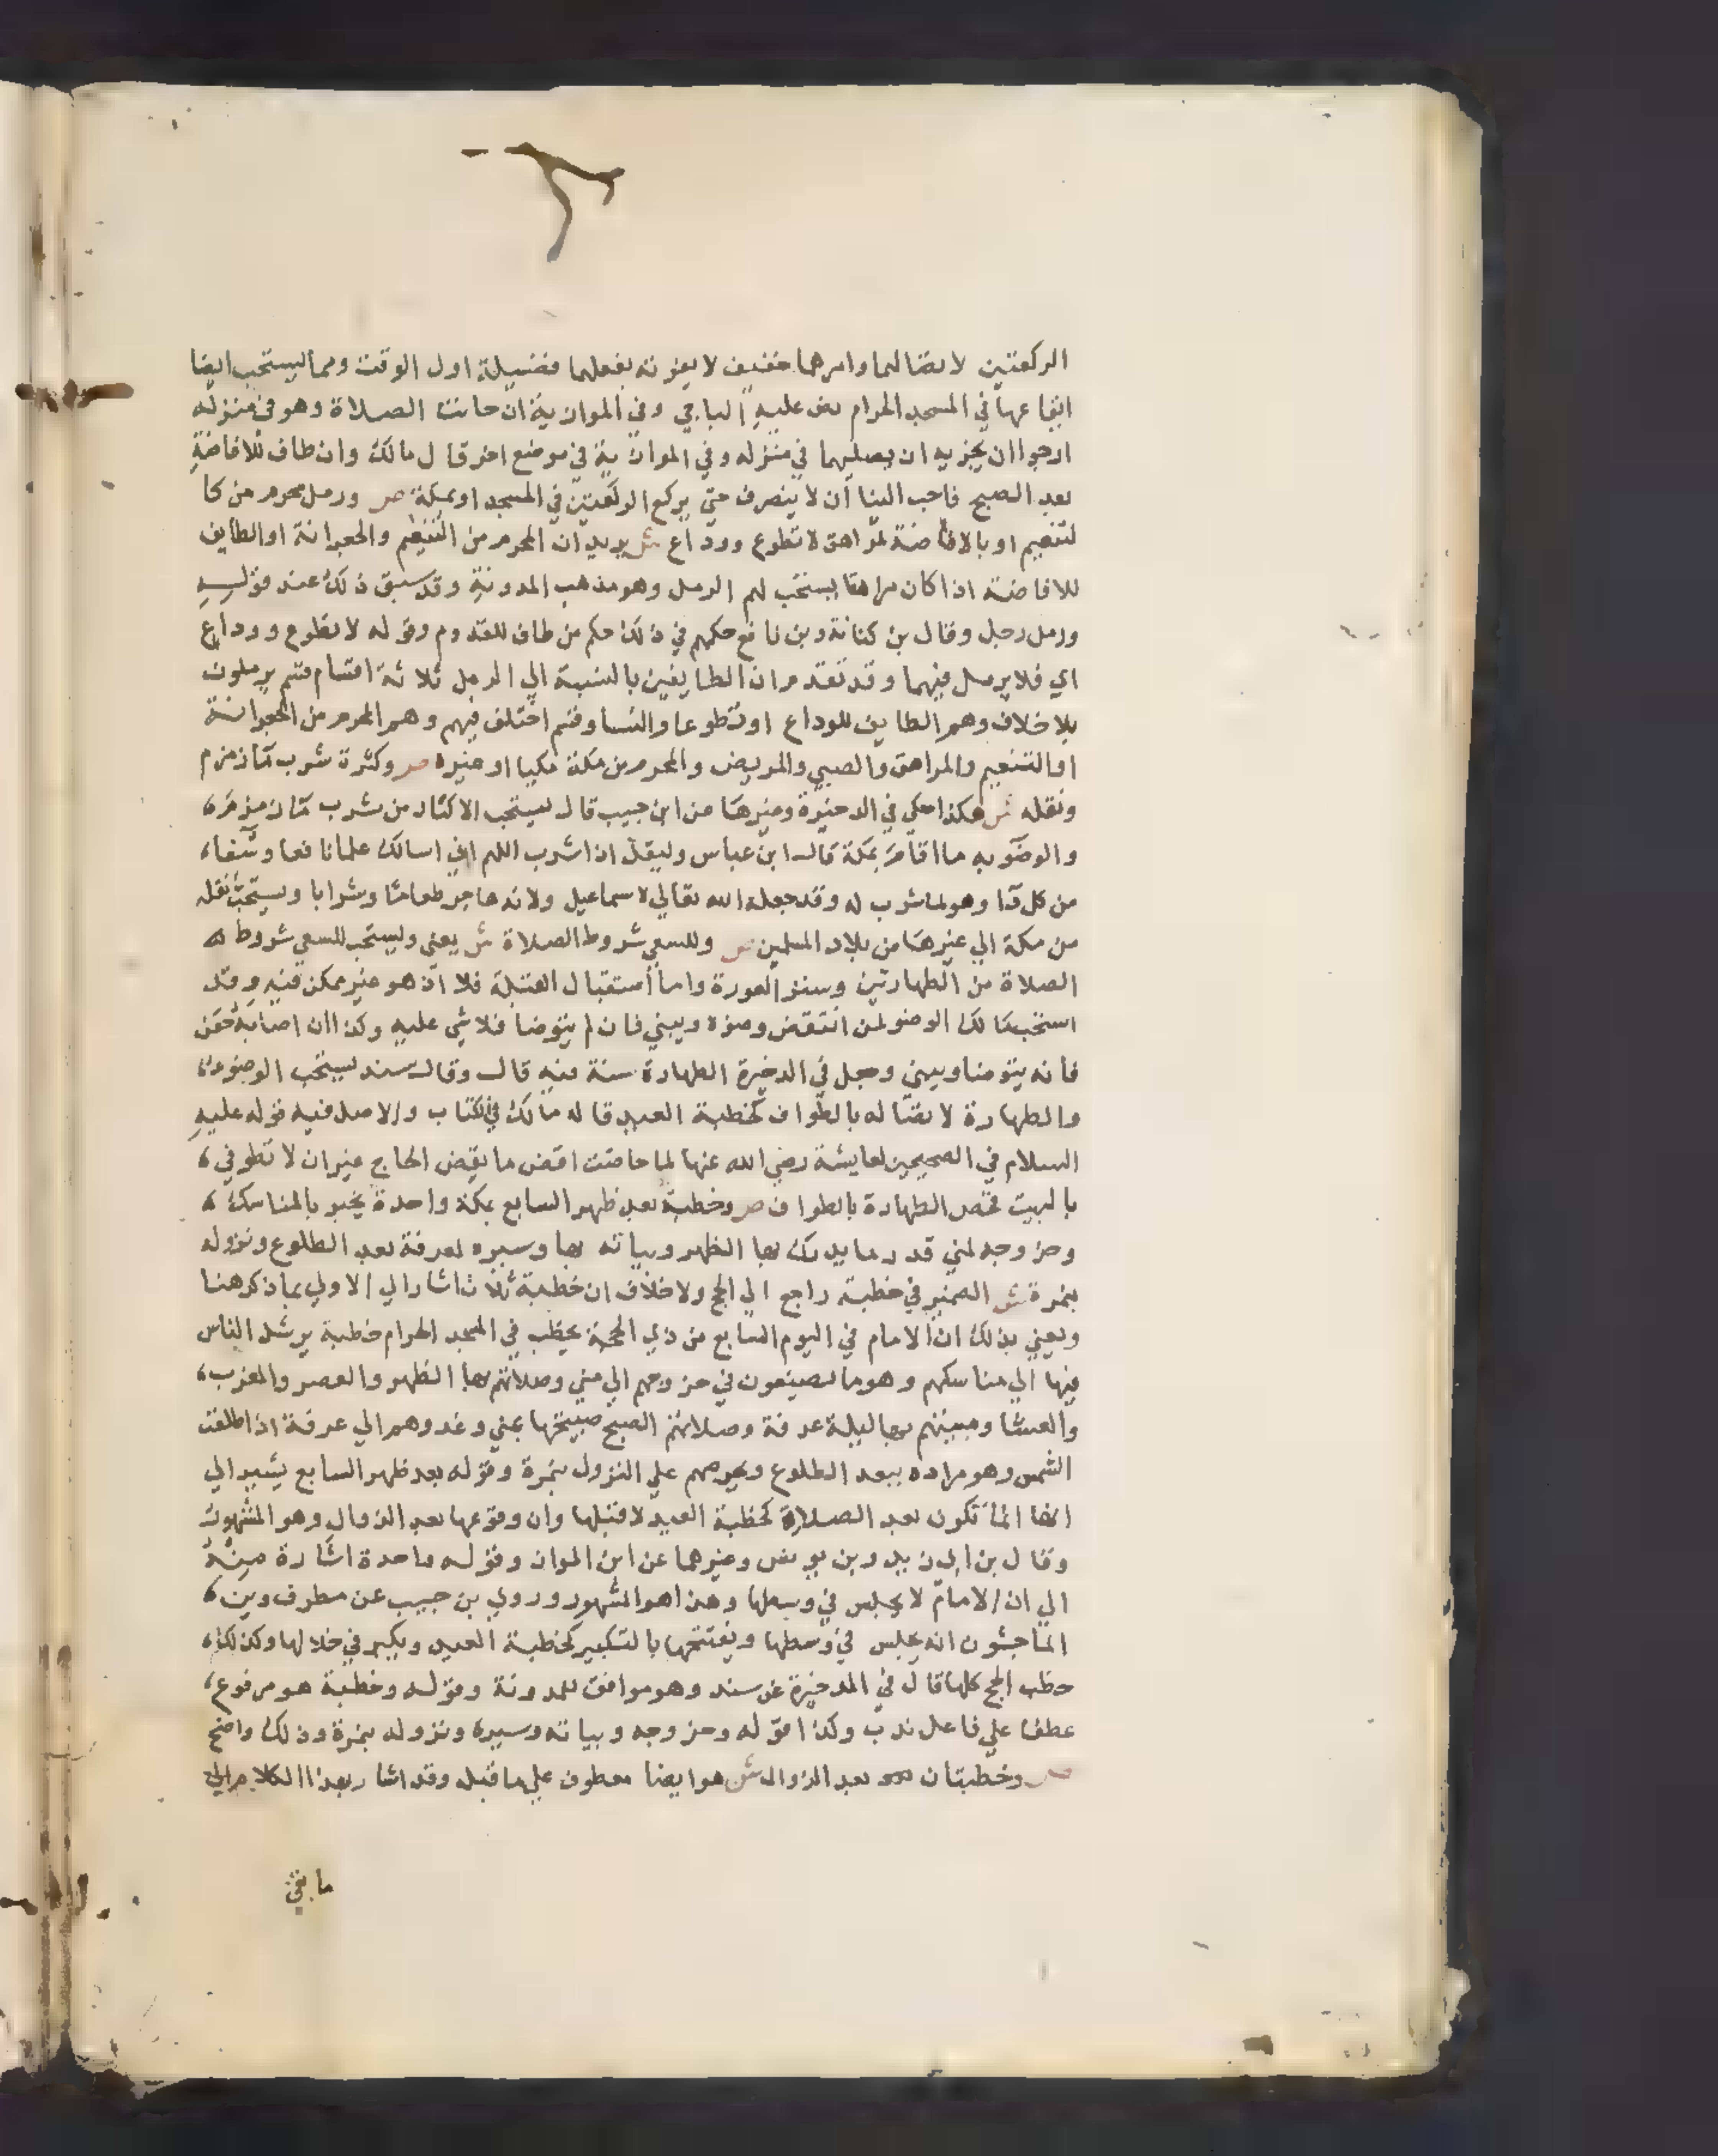 الركعتين لاتصالهما وامرهما خفيف لا يفوته بفعلهما فضيلة اول الوقت ومما يستحب ايضا
ايقاعها في المسجد الحرام نص عليه الباجي وفي الموازية ان حانت الصلاة وهو في منزله
ارجوا ان يجزيه ان يصليهما في منزله وفي الموازية في موضع اخر قال مالك وان طاف للافاضة
بعد الصبح فاحب الينا أن لا ينصرف حتي يركع الركعتين في المسجد او بمكة ص ورمل محرم من كا
لتنعيم او بالافاضة لمراهق لا تطوع ووداع ش يريد ان المحرم من التنعيم والجعرانة او الطايف
للافاضة اذا كان مراهقا يستحب لهم الرمل وهو مذهب المدونة وقد سبق ذلك عند قوله
ورمل رجل وقال بن كنانة وبن نافع حكمهم في ذلك حكم من طاف للقدوم وقوله لا تطوع ووداع
اي فلا يرمل فيهما وقد تقدم ان الطايفين بالنسبة الي الرمل ثلاثة اقسام قسم يرملون
بلا خلاف وهم الطايف للوداع او تطوعا والنسا وقسم اختلف فيهم وهم المحرم من الجعرانة
او التنعيم والمراهق والصبي والمريض والمحرم من مكة مكيا او غيره ص وكثرة شرب ما زمزم
ونقله ش هكذا حكي في الدخيرة وغيرها عن ابن حبيب قال يستحب الاكثار من شرب ما زمزم
والوضو به ما اقام بمكة قال ابن عباس وليقل اذا شرب اللهم اني اسالك علما نافعا وشفاء
من كل دا وهو لما شرب له وقد جعله الله تعالي لاسماعيل ولامه هاجر طعاما وشرابا ويستحب نقله
من مكة الي غيرها من بلاد المسلمين ص وللسعي شروط الصلاة ش يعني ويستحب للسعي شروط
الصلاة من الطهارتين وستر العورة واما أستقبال القبلة فلا اذ هو غير ممكن فيه وقد
استحب مالك الوضو لمن انتقض وضوه ويبني فان لم يتوضا فلا شي عليه وكذا ان اصابه حقن
فانه يتوضا ويبني وجعل في الدخيرة الطهارة سنة فيه قال وقال سند يستحب الوضوء
والطهارة لاتصاله بالطواف كخطبة العيد قاله مالك في الكتاب والاصل فيه قوله عليه
السلام في الصحيحين لعايشة رضي الله عنها لما حاضت افعلي ما يفعل الحاج غير ان لا تطوفي
بالبيت فخص الطهارة بالطواف ص وخطبة بعد ظهر السابع بمكة واحدة يخبر بالمناسك
وخروجه لمني قدر ما يدرك بها الظهر وبياته بها وسيره لعرفة بعد الطلوع ونزوله
بنمرة ش الضمير في خطبة راجع الي الحج ولا خلاف ان خطبة ثلاث اشار الي الاولي بما ذكر هنا
ويعني بذلك ان الامام في اليوم السابع من ذي الحجة يخطب في المسجد الحرام خطبة يرشد الناس
فيها الي مناسكهم وهو ما يصنعون في خروجهم الي مني وصلاتهم بها الظهر والعصر والمغرب
والعشا ومبيتهم بها ليلة عرفة وصلاتهم الصبح صبيحتها بمني وغدوهم الي عرفة اذا طلعت
الشمس وهو مراده ببعد الطلوع ويحرضهم علي النزول بنمرة وقوله بعد ظهر السابع يشير الي
انها انما تكون بعد الصلاة كخطبة العيد لا قبلها وان وقوعها بعد الزوال وهو المشهور
وقال بن ابي زيد وبن يونس وغيرهما عن ابن المواز وقوله واحدة اشارة منه
الي ان الامام لا يجلس في وسطها وهذا هو المشهور وروي بن حبيب عن مطرف وبن
الماجشون انه يجلس في وسطها ويفتتحها بالتكبير كخطبة العيد ويكبر في خلالها وكذلك
خطب الحج كلها قال في الدخيرة عن سند وهو موافق للمدونة وقوله وخطبة هو مرفوع
عطفا علي فاعل ندب وكذا قوله وخروجه وبياته وسيره ونزوله بنمرة وذلك واضح
ص وخطبتان بعد الزوال ش هو ايضا معطوف علي ما قبل وقد اشار بهذا الكلام الي
ما بقي